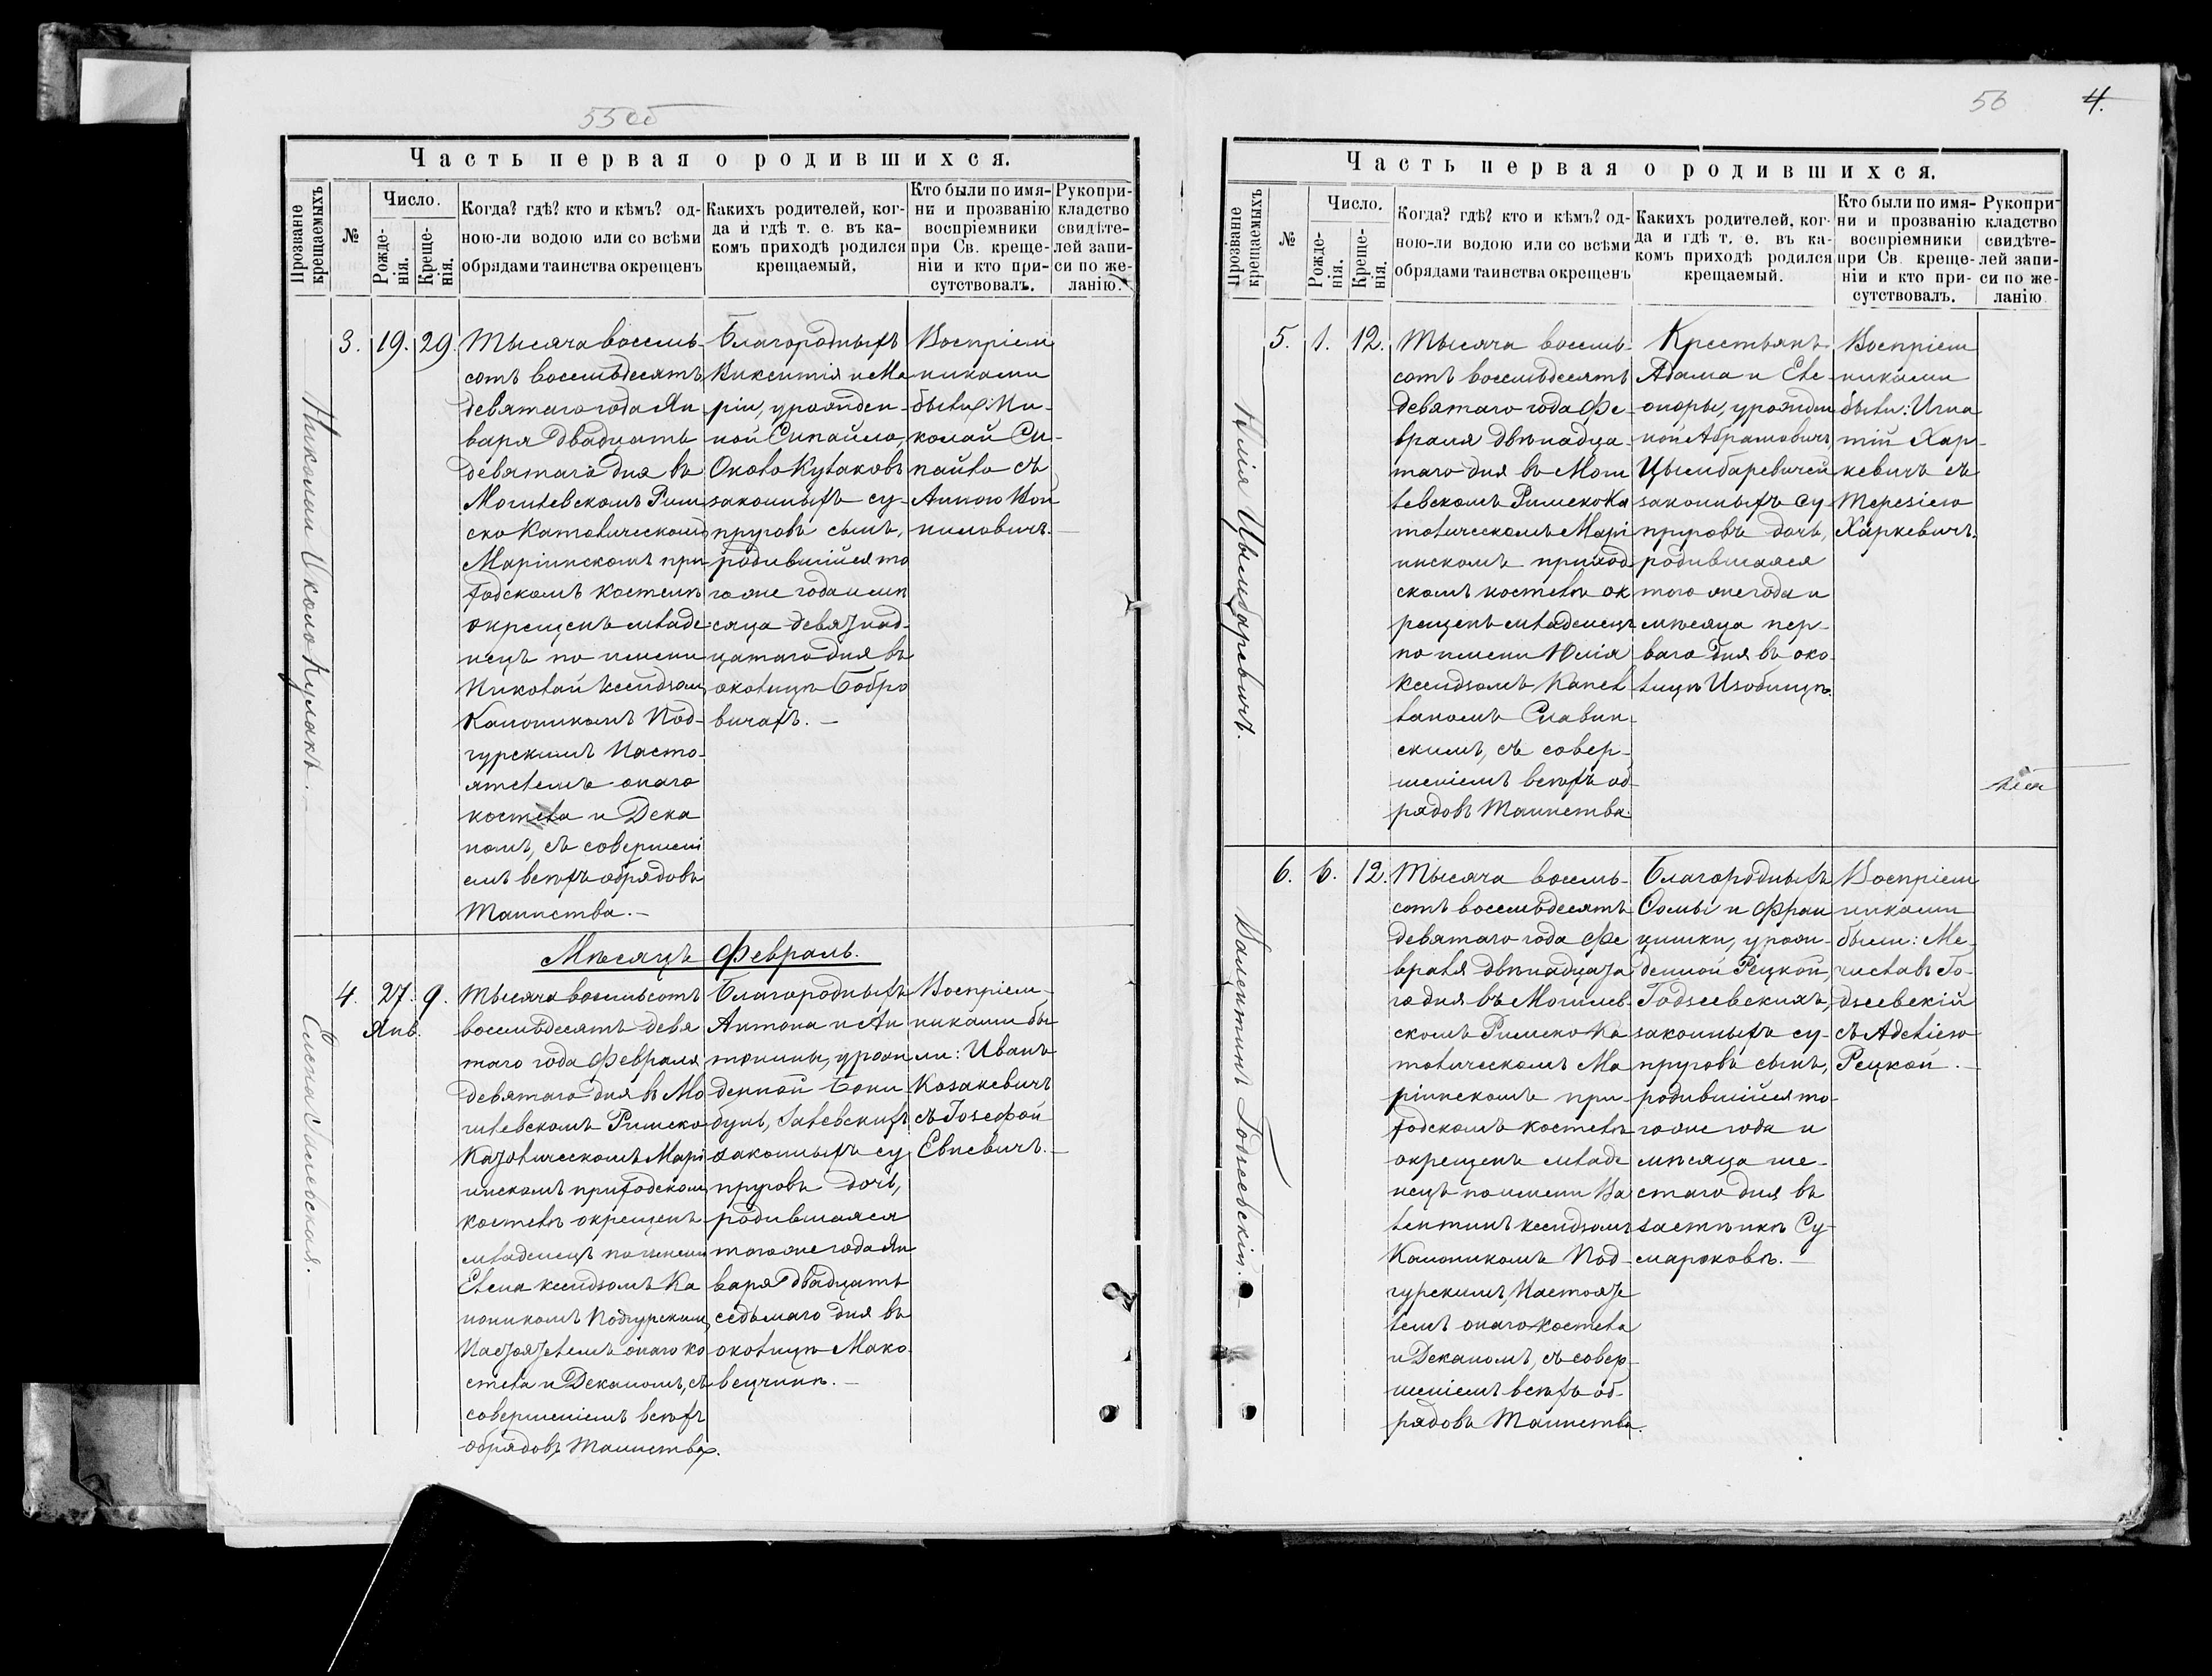 55об
Часть первая о родившихся.
Прозваніе крещаемыхъ
№
Число.
Рожде-
нія.
Креще-
нія.
Когда? гдѣ? кто и кѣмъ? од-
ною-ли водою или со всѣми
обрядами таинства окрещенъ
Какихъ родителей, ког-
да и гдѣ т. е. въ ка-
комъ приходѣ родился
крещаемый,
Кто были по имя-
ни и прозванію
воспріемники
при Св. креще-
ніи и кто при-
сутствовалъ.
Рукопри-
кладство
свидѣте-
лей запи-
си по же-
ланію.
3. 19. 29.
Тысяча восемь-
сотъ восемьдесятъ
девятаго года Ян
варя двадцать
девятаго дня въ
Могилевскомъ Рим
ско Католическомъ
Маріинскомъ при
ходскомъ костелѣ
окрещенъ младе
нецъ по имени
Николай ксендзом
Каноникомъ Под-
гурскимъ Насто-
ятелемъ онаго
костела и Дека
номъ, съ совершені
емъ всѣхъ обрядовъ
Таинства.-
Благородныхъ
Викентія и Ма
ріи, урожден
ной Сипайло,
Около Кулаковъ
законныхъ су-
пруговъ сынъ,
родившійся то
го же года и мѣ
сяца девятнад-
цатаго дня въ
околицѣ Бобро
вичахъ.-
Воспріем
никами
были: Ни-
колай Си-
пайло съ
Анною Вой
ниловичъ.
Мѣсяцъ Февраль.
4. 27. 9.
Янв.
Елена Галевская.
Тысяча восемьсотъ
восемьдесятъ девя
таго года Февраля
девятаго дня въ Мо
гилевскомъ Римско
Католическомъ Марі
инскомъ приходском
костелѣ окрещенъ
младенецъ по имени
Елена ксендзомъ Ка
ноникомъ Подгурским,
Настоятелемъ онаго ко
стела и Деканомъ, съ
совершеніемъ всѣхъ
обрядовъ Таинства.
Благородныхъ
Антона и Ан
тонины, урож
денной Бони
бунъ, Галевскихъ
законныхъ су
пруговъ дочь,
родившаяся
того же года Ян
варя двадцать
седьмаго дня въ
околицѣ Мако
вещчинѣ.-
Воспріем-
никами бы
ли: Иванъ
Козакевичъ
съ Іозефой
Евневичъ.-
56 4.
Часть первая о родившихся.
Прозваніе
крещаемыхъ
№
Число.
Рожде-
нія.
Креще-
нія.
Когда? гдѣ? кто и кѣмъ? од-
ною-ли водою или со всѣми
обрядами таинства окрещенъ
Какихъ родителей, ког-
да и гдѣ т. е. въ ка-
комъ приходѣ родился
крещаемый.
Кто были по имя-
ни и прозванію
воспріемники
при Св. креще-
ніи и кто при-
сутствовалъ.
Рукопри-
кладство
свидѣте-
лей запи-
си по же-
ланію
5. 1. 12.
Юлія Цымбаревичъ.
Тысяча восемь-
сотъ восемьдесятъ
девятаго года Фе
враля двѣнадца-
таго дня въ Моги
левскомъ Римско Ка
толическомъ Марі
инскомъ приход
скомъ костелѣ ок
рещенъ младенецъ
по имени Юлія
ксендзомъ Капел
ланомъ Славин-
скимъ, съ совер-
шеніемъ всѣхъ об
рядовъ Таинства.
Крестьянъ
Адама и Еле
оноры, урожден
ной Абрамовичъ
Цымбаревичей
законныхъ су
пруговъ дочь,
родившаяся
того же года и
мѣсяца пер-
ваго дня въ око
лицѣ Изобищѣ.
Воспріем
никами
были: Игна
тій Хар-
кевичъ съ
Терезіею
Харкевичъ.
6. 6. 12.
Валентинъ Годзеевскій.
Тысяча восемь-
сотъ восемьдесятъ
девятаго года Фе
враля двѣнадцата
го дня въ Могилев-
скомъ Римско Ка
толическомъ Ма
ріинскомъ при-
ходскомъ костелѣ
окрещенъ младе
нецъ по имени Ва
лентинъ ксендзомъ
Каноникомъ Под-
гурскимъ, Настояте
лемъ онаго костела
и Деканомъ, съ совер-
шеніемъ всѣхъ об-
рядовъ Таинства.
Благородныхъ
Ѳомы и Фран
цишки, урож-
денной Рецкой,
Годзеевскихъ,
законныхъ су-
пруговъ сынъ,
родившійся то-
го же года и
мѣсяца ше-
стаго дня въ
застѣнкѣ Су-
мароковѣ.-
Воспріем
никами
были: Ме-
числавъ Го-
дзеевскій
съ Аделіею
Рецкой.-